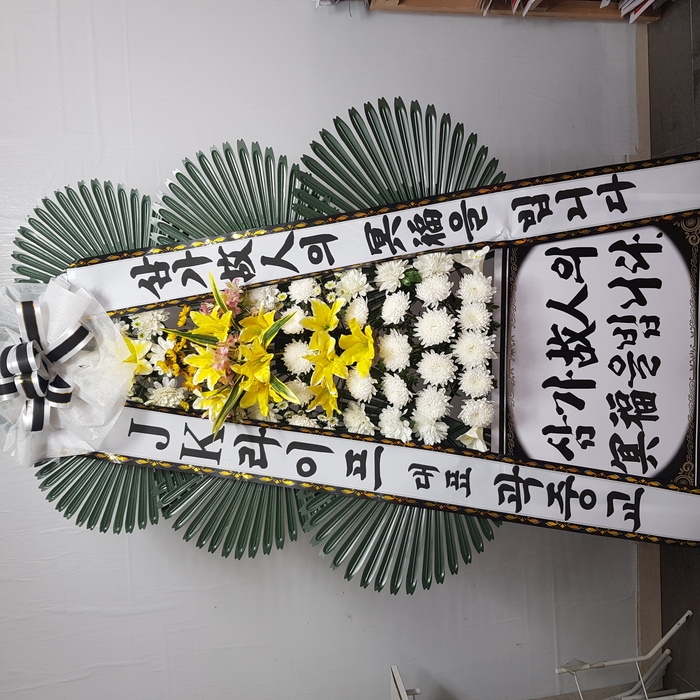 삼가故人의 冥福을 빕니다
JK라이프 대표 곽종교
삼가故人의
冥福을빕니다.